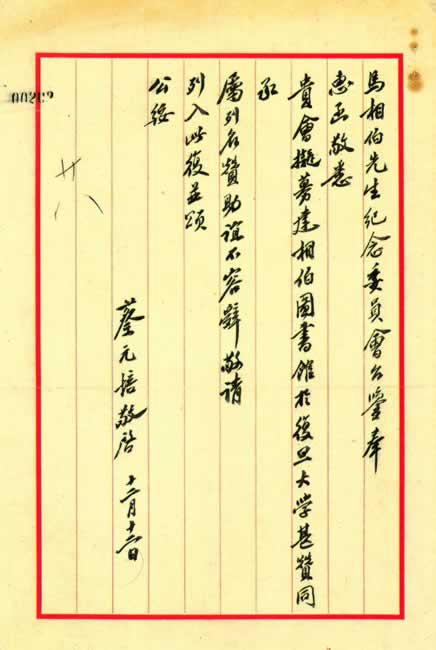 馬相伯先生紀念委員會公鑒奉
惠函敬悉
貴會擬募建相伯圖書館於復旦大學甚贊同
承
屬列名贊助誼不容辭敬請
列入此復並頌
公綏
蔡元培敬啓 十二月十二日
廿八
00202